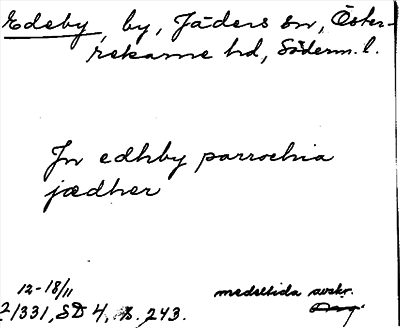 Edeby, by, Jäders sn, Öster-
rekarne hd, Söderm. l.
Jn edhby parrochia
jædher
12-18/11
21331, SD 4, s. 243.
medeltida avskr.